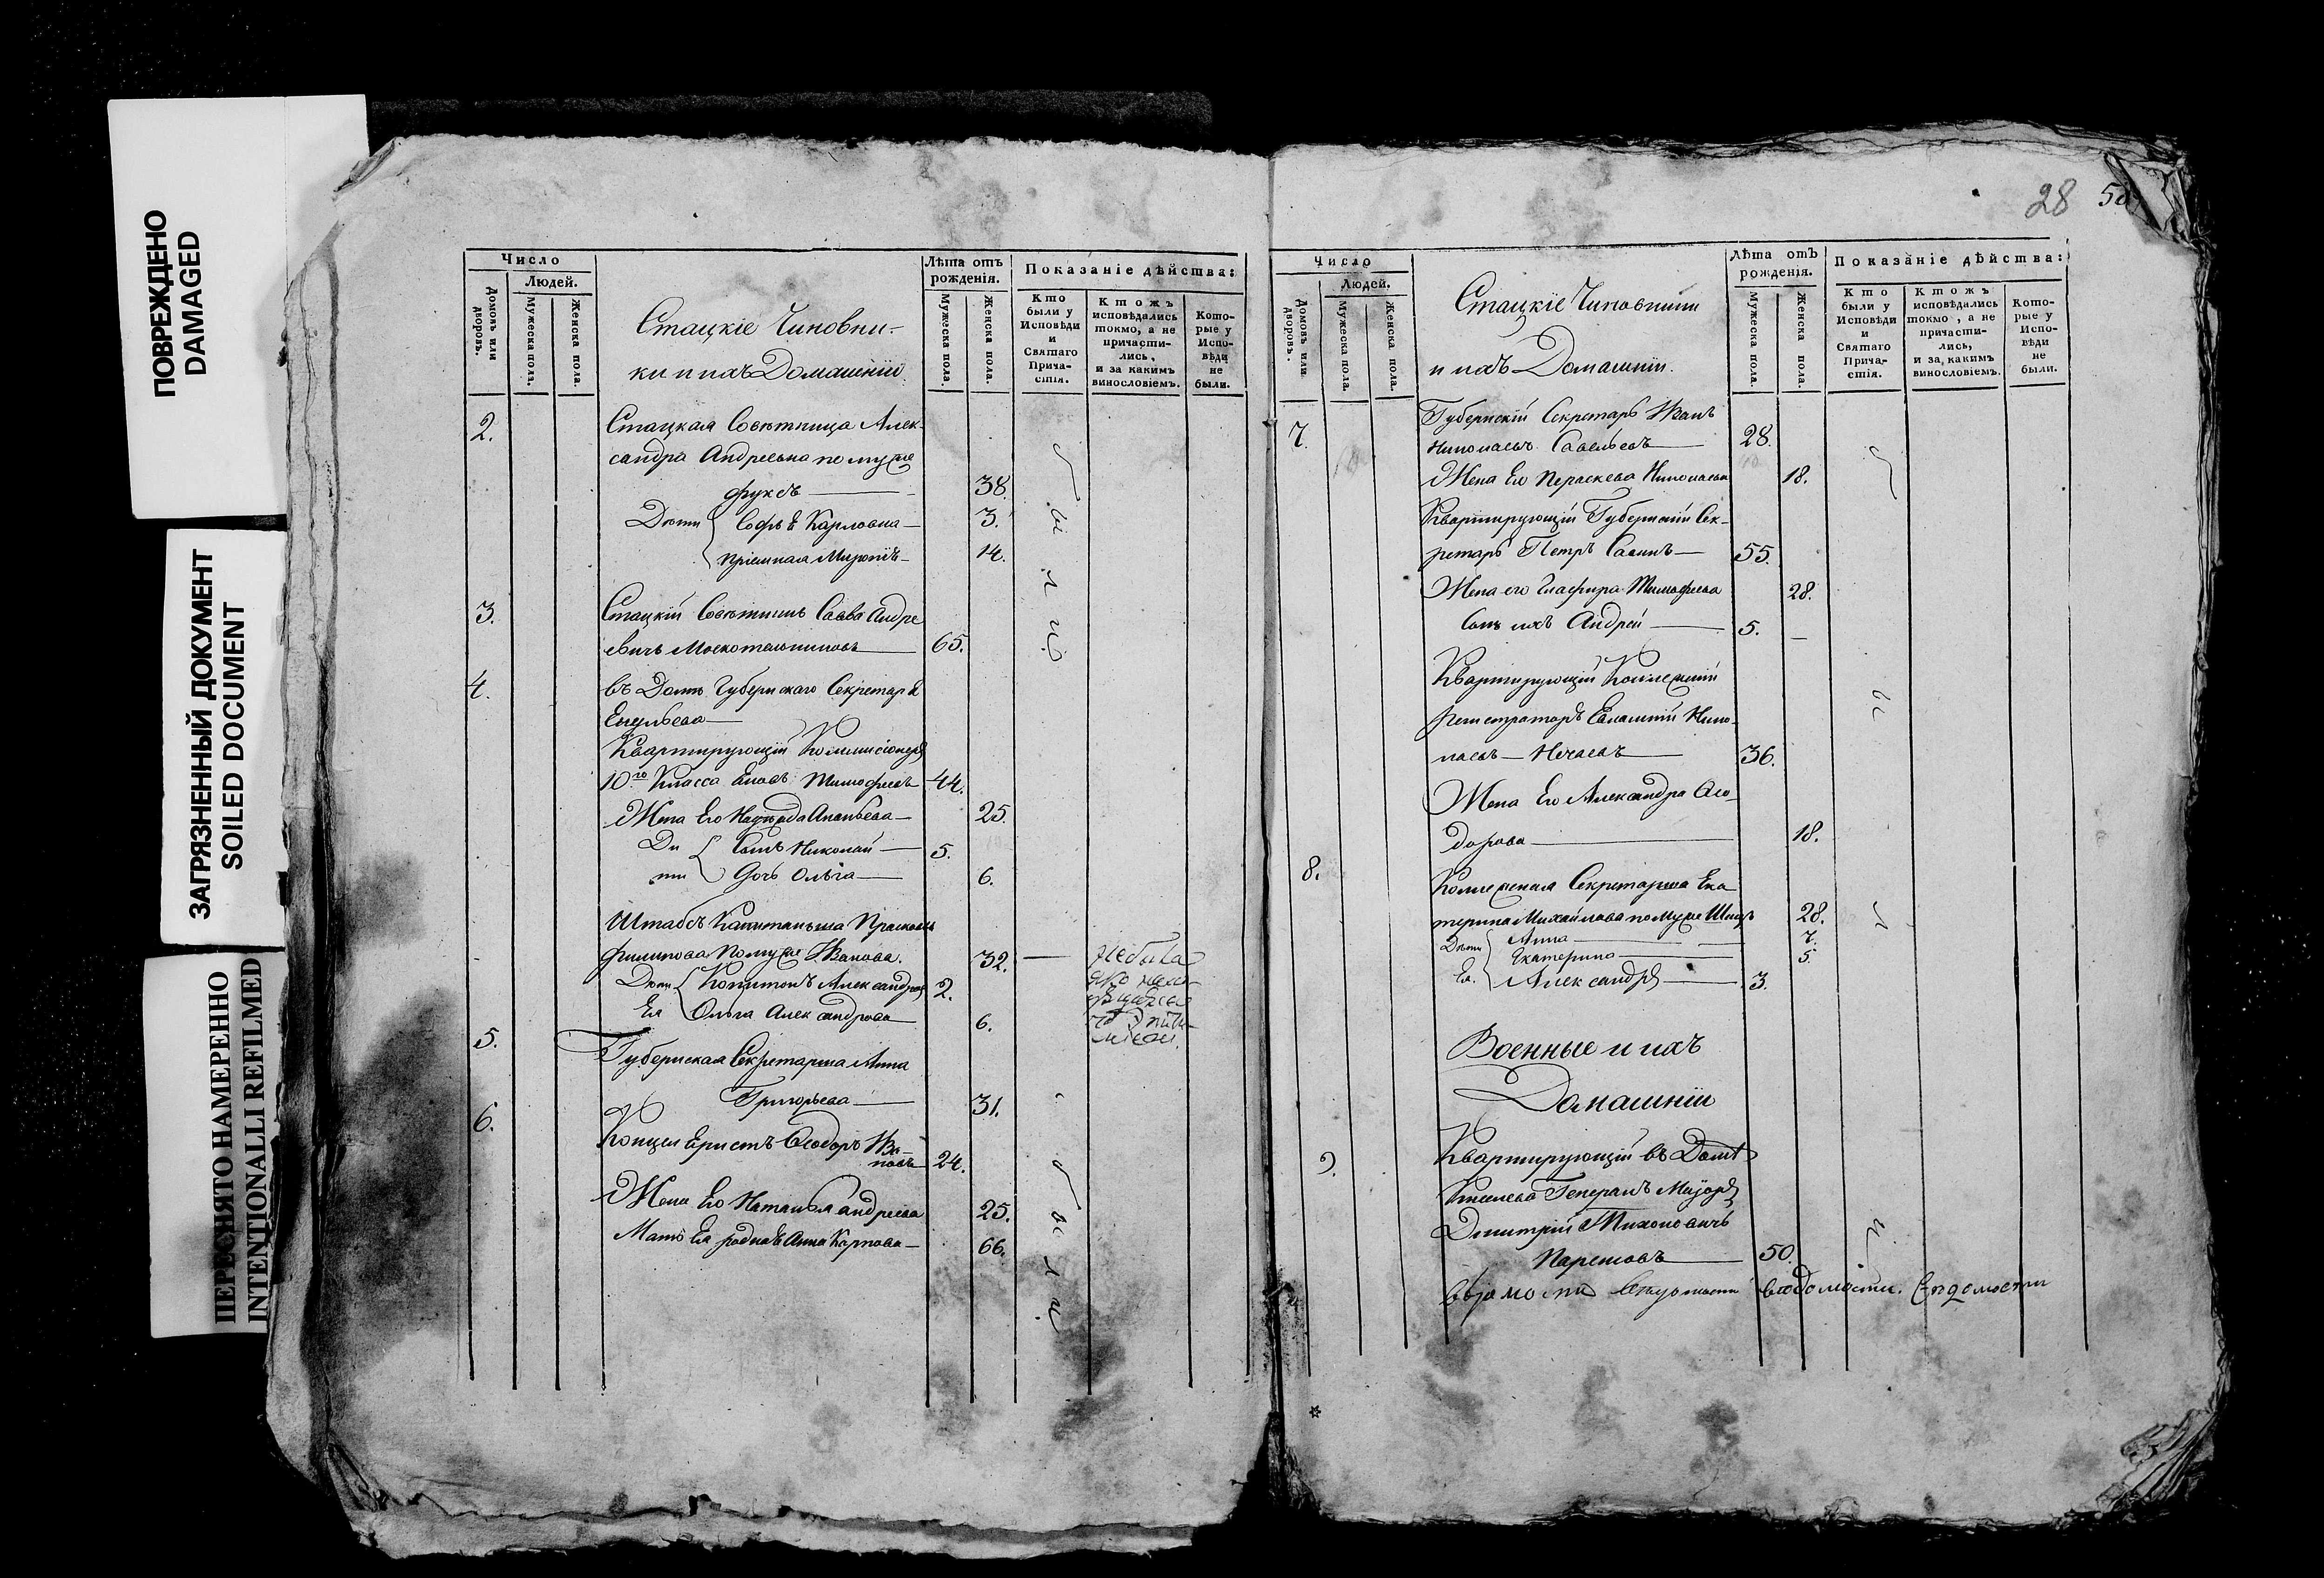 ПОВРЕЖДЕНО
DAMAGED
ЗАГРЯЗНЕННЫЙ ДОКУМЕНТ
SOILED DOCUMENT
ПЕРЕСНЯТО НАМЕРЕННО
INTENTIONALLI REFILMED
Число
Людей.
Домовъ или дворовъ.
Мужеска пола.
Женска пола.
Стацкіе Чиновни-
ки и ихъ Домашніи
Лѣта отъ рожденія.
Мужеска пола.
Женска пола.
Показаніе дѣйства:
Кто были у Исповѣди и Святаго Прича-стія.
Ктожъ исповѣдались токмо, а не причасти-лись, и за какимъ винословіемъ.
Кото-рые у Испо-вѣди не были.
2. Стацкая Совѣтница Алек-
сандра Андреевна по мужѣ
фуксъ — 38.
Дѣти Софья Карловна — 3.
Пріемная — 14.
3. Стацкій Совѣтникъ Савва Андре
евичь 65.
4. въ Домѣ Губернскаго Секретаря
Квартирующій Коммисіонеръ
10го Класса Тимофеевъ 44.
Жена Его Надежда Ананьева — 25.
Дѣ Сынъ Николай — 5.
ти Дочь Ольга — 6.
Штабсъ Капитанша Прасковья
филипова по мужѣ Иванова. 32. — небыла
Дѣти Капитонъ Александровъ 2.
Ея Ольга Александрова 6.
5. Губернская Секретарша Анна
Григорьева — 31.
6. Концеляристъ Ѳеодоръ Ива-
новъ 24.
Жена Его Наталья андреева 25.
Мать Ея родная Анна Карпова — 66.
были
28
50
Число
Людей.
Домовъ или дворовъ.
Мужеска пола.
Женска пола.
Стацкіе Чиновники
и ихъ Домашніи.
Лѣта отъ рожденія.
Мужеска пола.
Женска пола.
Показаніе дѣйства:
Кто были у Исповѣди и Святаго Прича-стія.
Ктожъ исповѣдались токмо, а не причасти-лись, и за какимъ винословіемъ.
Кото-рые у Испо-вѣди не были.
7. Губернскій Секретарь Иванъ
Николаевъ Савельевъ — 28.
Жена Его Параскева Николаева 18.
Квартирующій Губернскій Сек-
ретарь Петръ Савинъ — 55.
Жена его Глафира Тимофеева 28.
Сынъ ихъ Андрей — 5. —
Квартирующій Коллежскій
регистраторъ Нико-
лаевъ — Нечаевъ — 36.
Жена Его Александра Ѳео-
дорова — 18.
8. Коллежская Секретарша Ека
терина Михайлова по мужѣ 28.
Дѣти Анна — 7.
Екатерина — 5.
Ея. Александръ — 3.
Военные и ихъ
Домашніи
9. Квартирующій въ Домѣ
Киселева Генералъ Маіоръ
Дмитрій Тихоновичь
50.